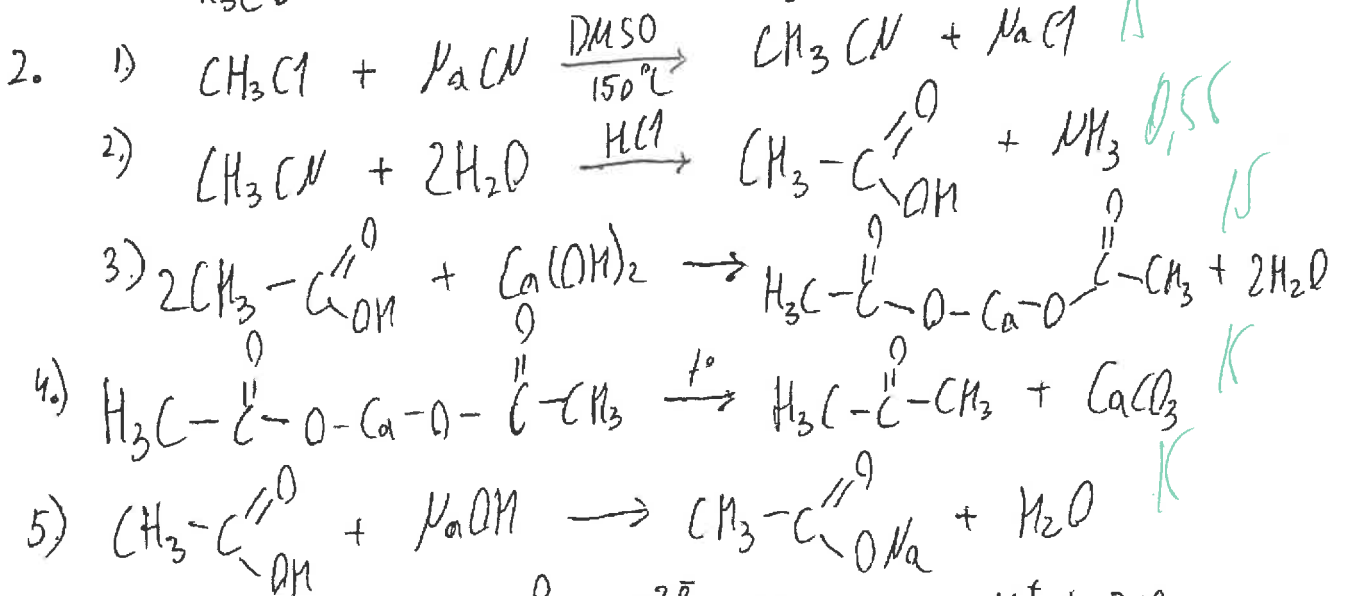 2. 1) CH₃Cl + NaCN DMSO 150°C → CH₃CN + NaCl
2) CH₃CN + 2H₂O HCl → CH₃-C(=O)OH + NH₃
3) 2CH₃-C(=O)OH + Ca(OH)₂ → H₃C-C(=O)-O-Ca-O-C(=O)-CH₃ + 2H₂O
4.) H₃C-C(=O)-O-Ca-O-C(=O)-CH₃ t° → H₃C-C(=O)-CH₃ + CaCO₃
5) CH₃-C(=O)OH + NaOH → CH₃-C(=O)ONa + H₂O